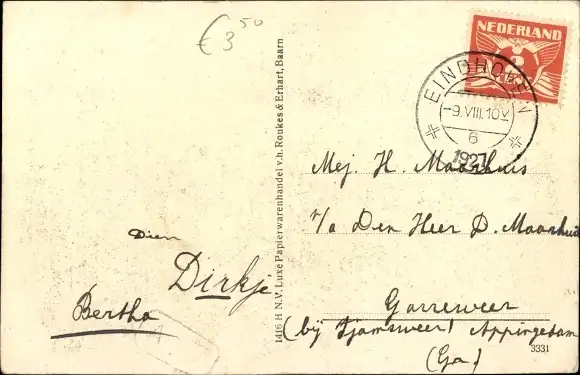 €3,50
NEDERLAND
EINDHOVEN
-9.VIII.10V
6
1927
1416 H N.V. Luxe Papierwarenhandel v.h. Roukes & Erhart, Baarn
Mej. H. Maarhuis
p/a Den Heer D. Maarhuis
Dirkje
Bertha
Garreweer
(bij Tjamsweer! Appingedam
(Gr.)
3331